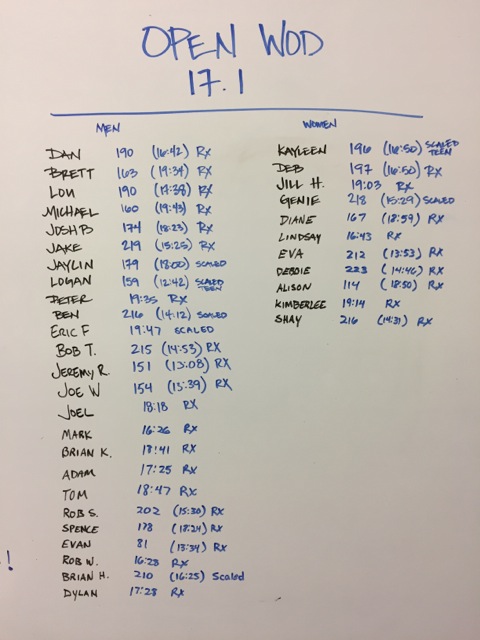 OPEN WOD
17.1
MEN
DAN 190 (16:42) Rx
BRETT 163 (19:34) Rx
LOU 190 (17:38) Rx
MICHAEL 160 (19:43) Rx
JOSH B 174 (18:23) Rx
JAKE 219 (15:25) Rx
JAYLIN 179 (18:00) SCALED
LOGAN 159 (12:42) SCALED TEEN
PETER 19:35 Rx
BEN 216 (14:12) SCALED
ERIC F 19:47 SCALED
BOB T. 215 (14:53) RX
JEREMY R. 151 (13:08) RX
JOE W 154 (13:39) RX
JOEL 18:18 RX
MARK 16:26 RX
BRIAN K. 18:41 RX
ADAM 17:25 RX
TOM 18:47 RX
ROB S. 202 (15:30) RX
SPENCE 178 (18:24) RX
EVAN 81 (13:34) RX
ROB N. 16:28 RX
BRIAN H. 210 (16:25) Scaled
DYLAN 17:28 RX
!
WOMEN
KAYLEEN 196 (16:50) SCALED TEEN
DEB 197 (16:50) RX
JILL H. 19:03 RX
GENIE 218 (15:29) SCALED
DIANE 167 (18:59) RX
LINDSAY 16:43 RX
EVA 212 (13:53) RX
DEBBIE 223 (14:46) RX
ALISON 114 (18:50) RX
KIMBERLEE 19:14 RX
SHAY 216 (14:31) RX